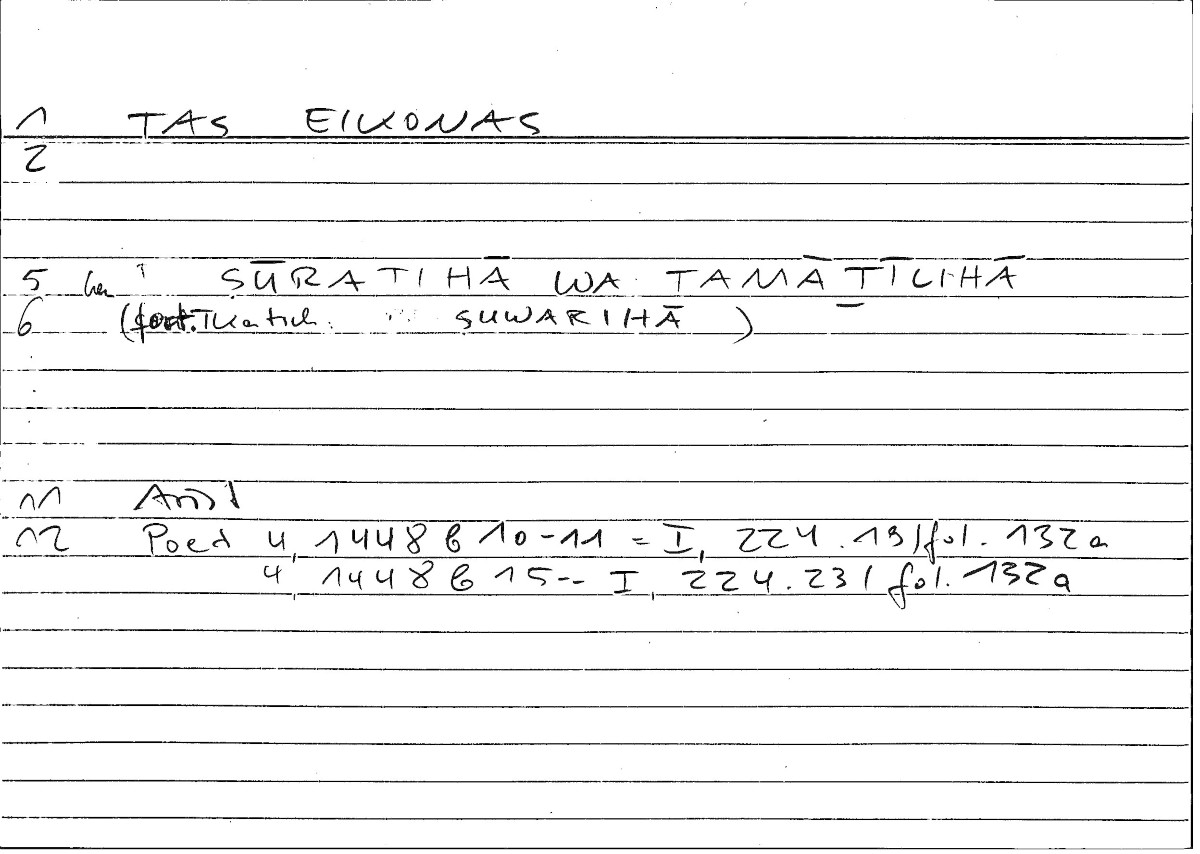 1 TAS EIKONAS
2
5 hen ṢŪRATIHĀ WA TAMĀṮĪLIHĀ
6 ( Tkatsch. ṢUWARIHĀ )
11 Arist
12 Poet 4, 1448 b 10-11 = I, 224.19/fol. 132a
4, 1448 b 15-- I, 224.23/fol. 132a